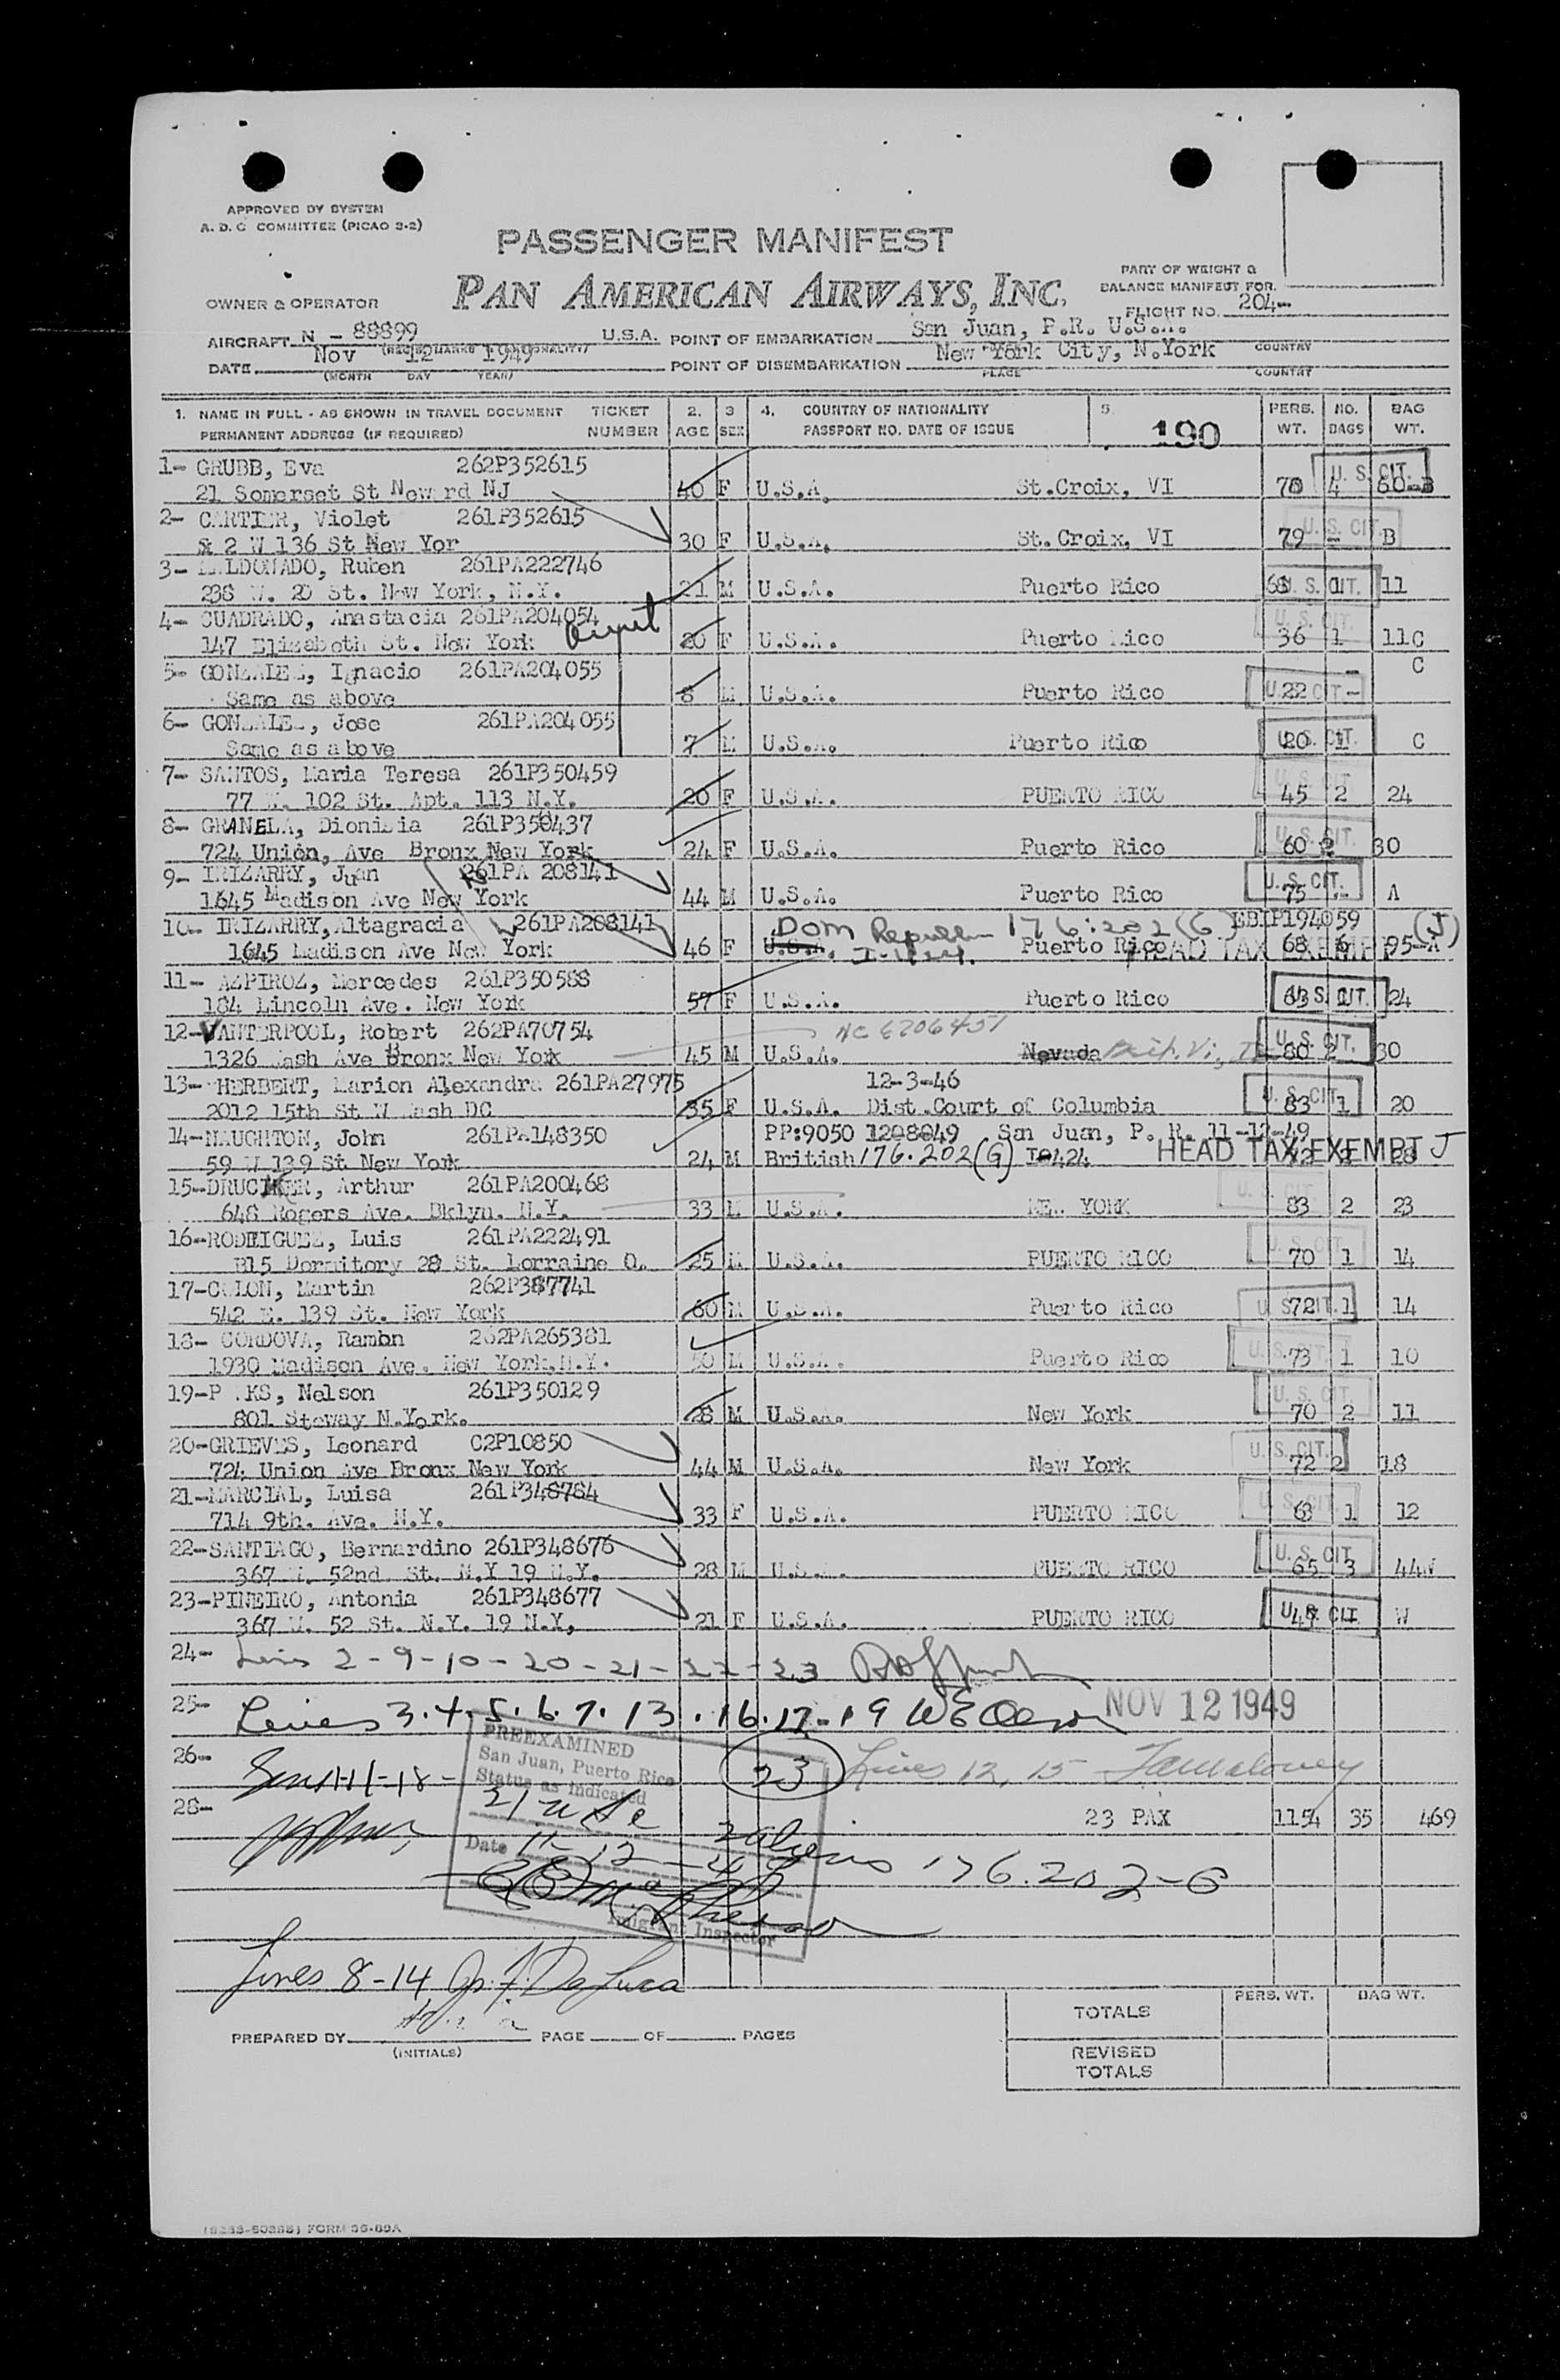 APPROVED BY SYSTEM
A. D. C COMMITTEE (PICAO 3-2)
PASSENGER MANIFEST
PAN AMERICAN AIRWAYS, INC.
PART OF WEIGHT &
BALANCE MANIFEST FOR
OWNER & OPERATOR
FLIGHT NO. 204-
AIRCRAFT N - 88899 U.S.A. POINT OF EMBARKATION San Juan, P.R. U.S.A.
DATE Nov 12 1949 POINT OF DISEMBARKATION New York City, N.York COUNTRY
(MONTH DAY YEAR) PLACE COUNTRY
1. NAME IN FULL - AS SHOWN IN TRAVEL DOCUMENT TICKET 2. 3 4. COUNTRY OF NATIONALITY 5. PERS. NO. BAG
PERMANENT ADDRESS (IF REQUIRED) NUMBER AGE SEX PASSPORT NO. DATE OF ISSUE 190 WT. BAGS WT.
1- GRUBB, Eva 262P352615 U. S. CIT.
21 Somerset St Neward NJ 40 F U.S.A. St.Croix, VI 70 4 60-B
2- CARTIER, Violet 261P352615 U. S. CIT.
& 2 W 136 St New Yor 30 F U.S.A. St.Croix, VI 79 - B
3- MALDONADO, Ruben 261PA222746
238 W. 20 St. New York, N.Y. 21 M U.S.A. Puerto Rico 68 U. S. CIT. 1 11
4- CUADRADO, Anastacia 261PA204054 U. S. CIT.
147 Elizabeth St. New York 20 F U.S.A. Puerto Rico 36 1 11C
5- GONZALEZ, Ignacio 261PA204055 - C
Same as above 8 M U.S.A. Puerto Rico U. S. CIT. 22 -
6- GONZALEZ, Jose 261PA204055
Same as above 7 M U.S.A. Puerto Rico 20 U. S. CIT. 1 C
7- SANTOS, Maria Teresa 261P350459 U. S. CIT.
77 W. 102 St. Apt. 113 N.Y. 20 F U.S.A. PUERTO RICO 45 2 24
8- GRANELA, Dionisia 261P350437 U. S. CIT.
724 Union, Ave Bronx New York 24 F U.S.A. Puerto Rico 60 2 30
9- IRIZARRY, Juan 261PA 208141 U. S. CIT.
1645 Madison Ave New York 44 M U.S.A. Puerto Rico 75 - A
10- IRIZARRY, Altagracia 261PA208141 Dom Republic 176.202(G) EBIP194059 (J)
1645 Madison Ave New York 46 F U.S.A. Puerto Rico HEAD TAX EXEMPT 68 6 95-A
11- AZPIROZ, Mercedes 261P350588
184 Lincoln Ave. New York 57 F U.S.A. Puerto Rico 63 U. S. CIT. 1 24
12- VANTERPOOL, Robert 262PA70754 NC 6706451 U. S. CIT.
1326 Wash Ave Bronx New York 45 M U.S.A. Nevada Brit. Vi, 80 2 30
13- HERBERT, Marion Alexandra 261PA27975 12-3-46 U. S. CIT.
2012 15th St W Wash DC 35 F U.S.A. Dist.Court of Columbia 83 1 20
14- NAUGHTON, John 261PA148350 PP:9050 1208049 San Juan, P. R. 11-12-49
59 W 139 St New York 24 M British 176.202(G) I-424 HEAD TAX EXEMPT J 72 2 28
15- DRUCKER, Arthur 261PA200468 U. S. CIT.
648 Rogers Ave. Bklyn. N.Y. 33 M U.S.A. NEW YORK 83 2 23
16- RODRIGUEZ, Luis 261PA222491 U. S. CIT.
815 Dormitory 28 St. Lorraine O. 25 M U.S.A. PUERTO RICO 70 1 14
17- COLON, Martin 262P387741
542 E. 139 St. New York 60 M U.S.A. Puerto Rico U. S. CIT. 72 1 14
18- CORDOVA, Ramon 262PA265381 U. S. CIT.
1930 Madison Ave. New York,N.Y. 50 M U.S.A. Puerto Rico 73 1 10
19- P KS, Nelson 261P350129 U. S. CIT.
801 Steway N.York. 28 M U.S.A. New York 70 2 11
20- GRIEVES, Leonard C2P10850 U. S. CIT.
724 Union Ave Bronx New York 44 M U.S.A. New York 72 2 18
21- MARCIAL, Luisa 261P348784 U. S. CIT.
714 9th. Ave. N.Y. 33 F U.S.A. PUERTO RICO 63 1 12
22- SANTIAGO, Bernardino 261P348676 U. S. CIT.
367 W. 52nd. St. N.Y 19 N.Y. 28 M U.S.A. PUERTO RICO 65 3 44W
23- PINEIRO, Antonia 261P348677 U. S. CIT.
367 W. 52 St. N.Y. 19 N.Y, 21 F U.S.A. PUERTO RICO 45 W
24- Lines 2-9-10-20-21-22-23
25- Lines 3.4.5.6.7.13.16.17-19 W E Olson NOV 12 1949
PREEXAMINED
San Juan, Puerto Rico
Status as Indicated
26- 23 Lines 12, 15
28- 21 23 PAX 1154 35 469
Date 11-12-49 2 aliens 176.202-G
Imigrant Inspector
Lines 8-14 Jos. F. DeLuca
TOTALS PERS. WT. BAG WT.
PREPARED BY PAGE OF PAGES
(INITIALS)
REVISED
TOTALS
FORM 36-89A